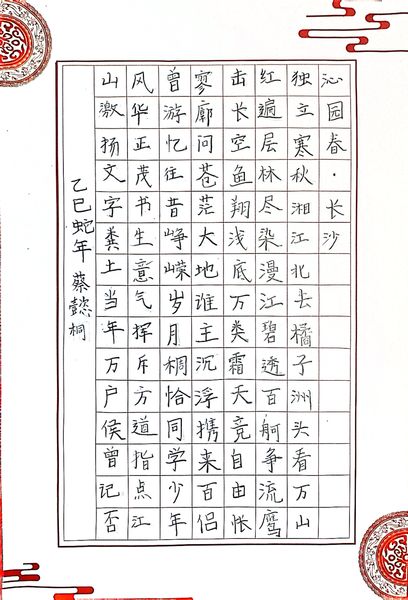 沁园春·长沙
独立寒秋湘江北去橘子洲头看万山
红遍层林尽染漫江碧透百舸争流鹰
击长空鱼翔浅底万类霜天竞自由怅
寥廓问苍茫大地谁主沉浮携来百侣
曾游忆往昔峥嵘岁月稠恰同学少年
风华正茂书生意气挥斥方遒指点江
山激扬文字粪土当年万户侯曾记否
乙巳蛇年蔡懿桐